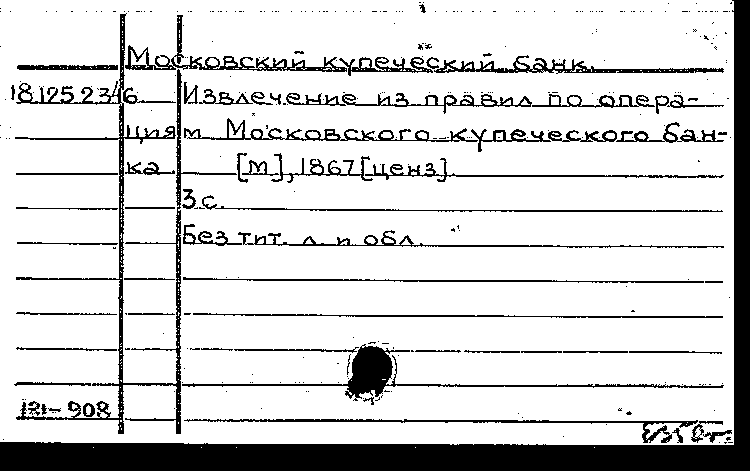 Московский купеческий банк.
18.125.2.3/6. Извлечение из правил по опера-
циям Московского купеческого бан-
ка. [М], 1867 [ценз].
3 с.
Без тит. л. и обл.
121-908